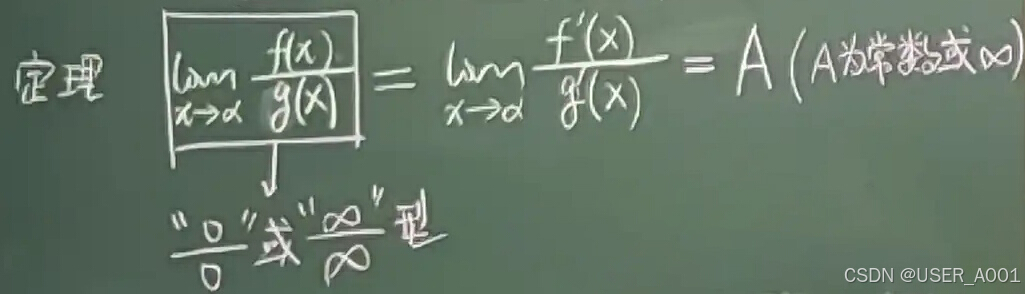 定理 lim x→α f(x)/g(x) = lim x→α f'(x)/g'(x) = A (A为常数或∞)
"0/0"或"∞/∞"型
CSDN @USER_A001